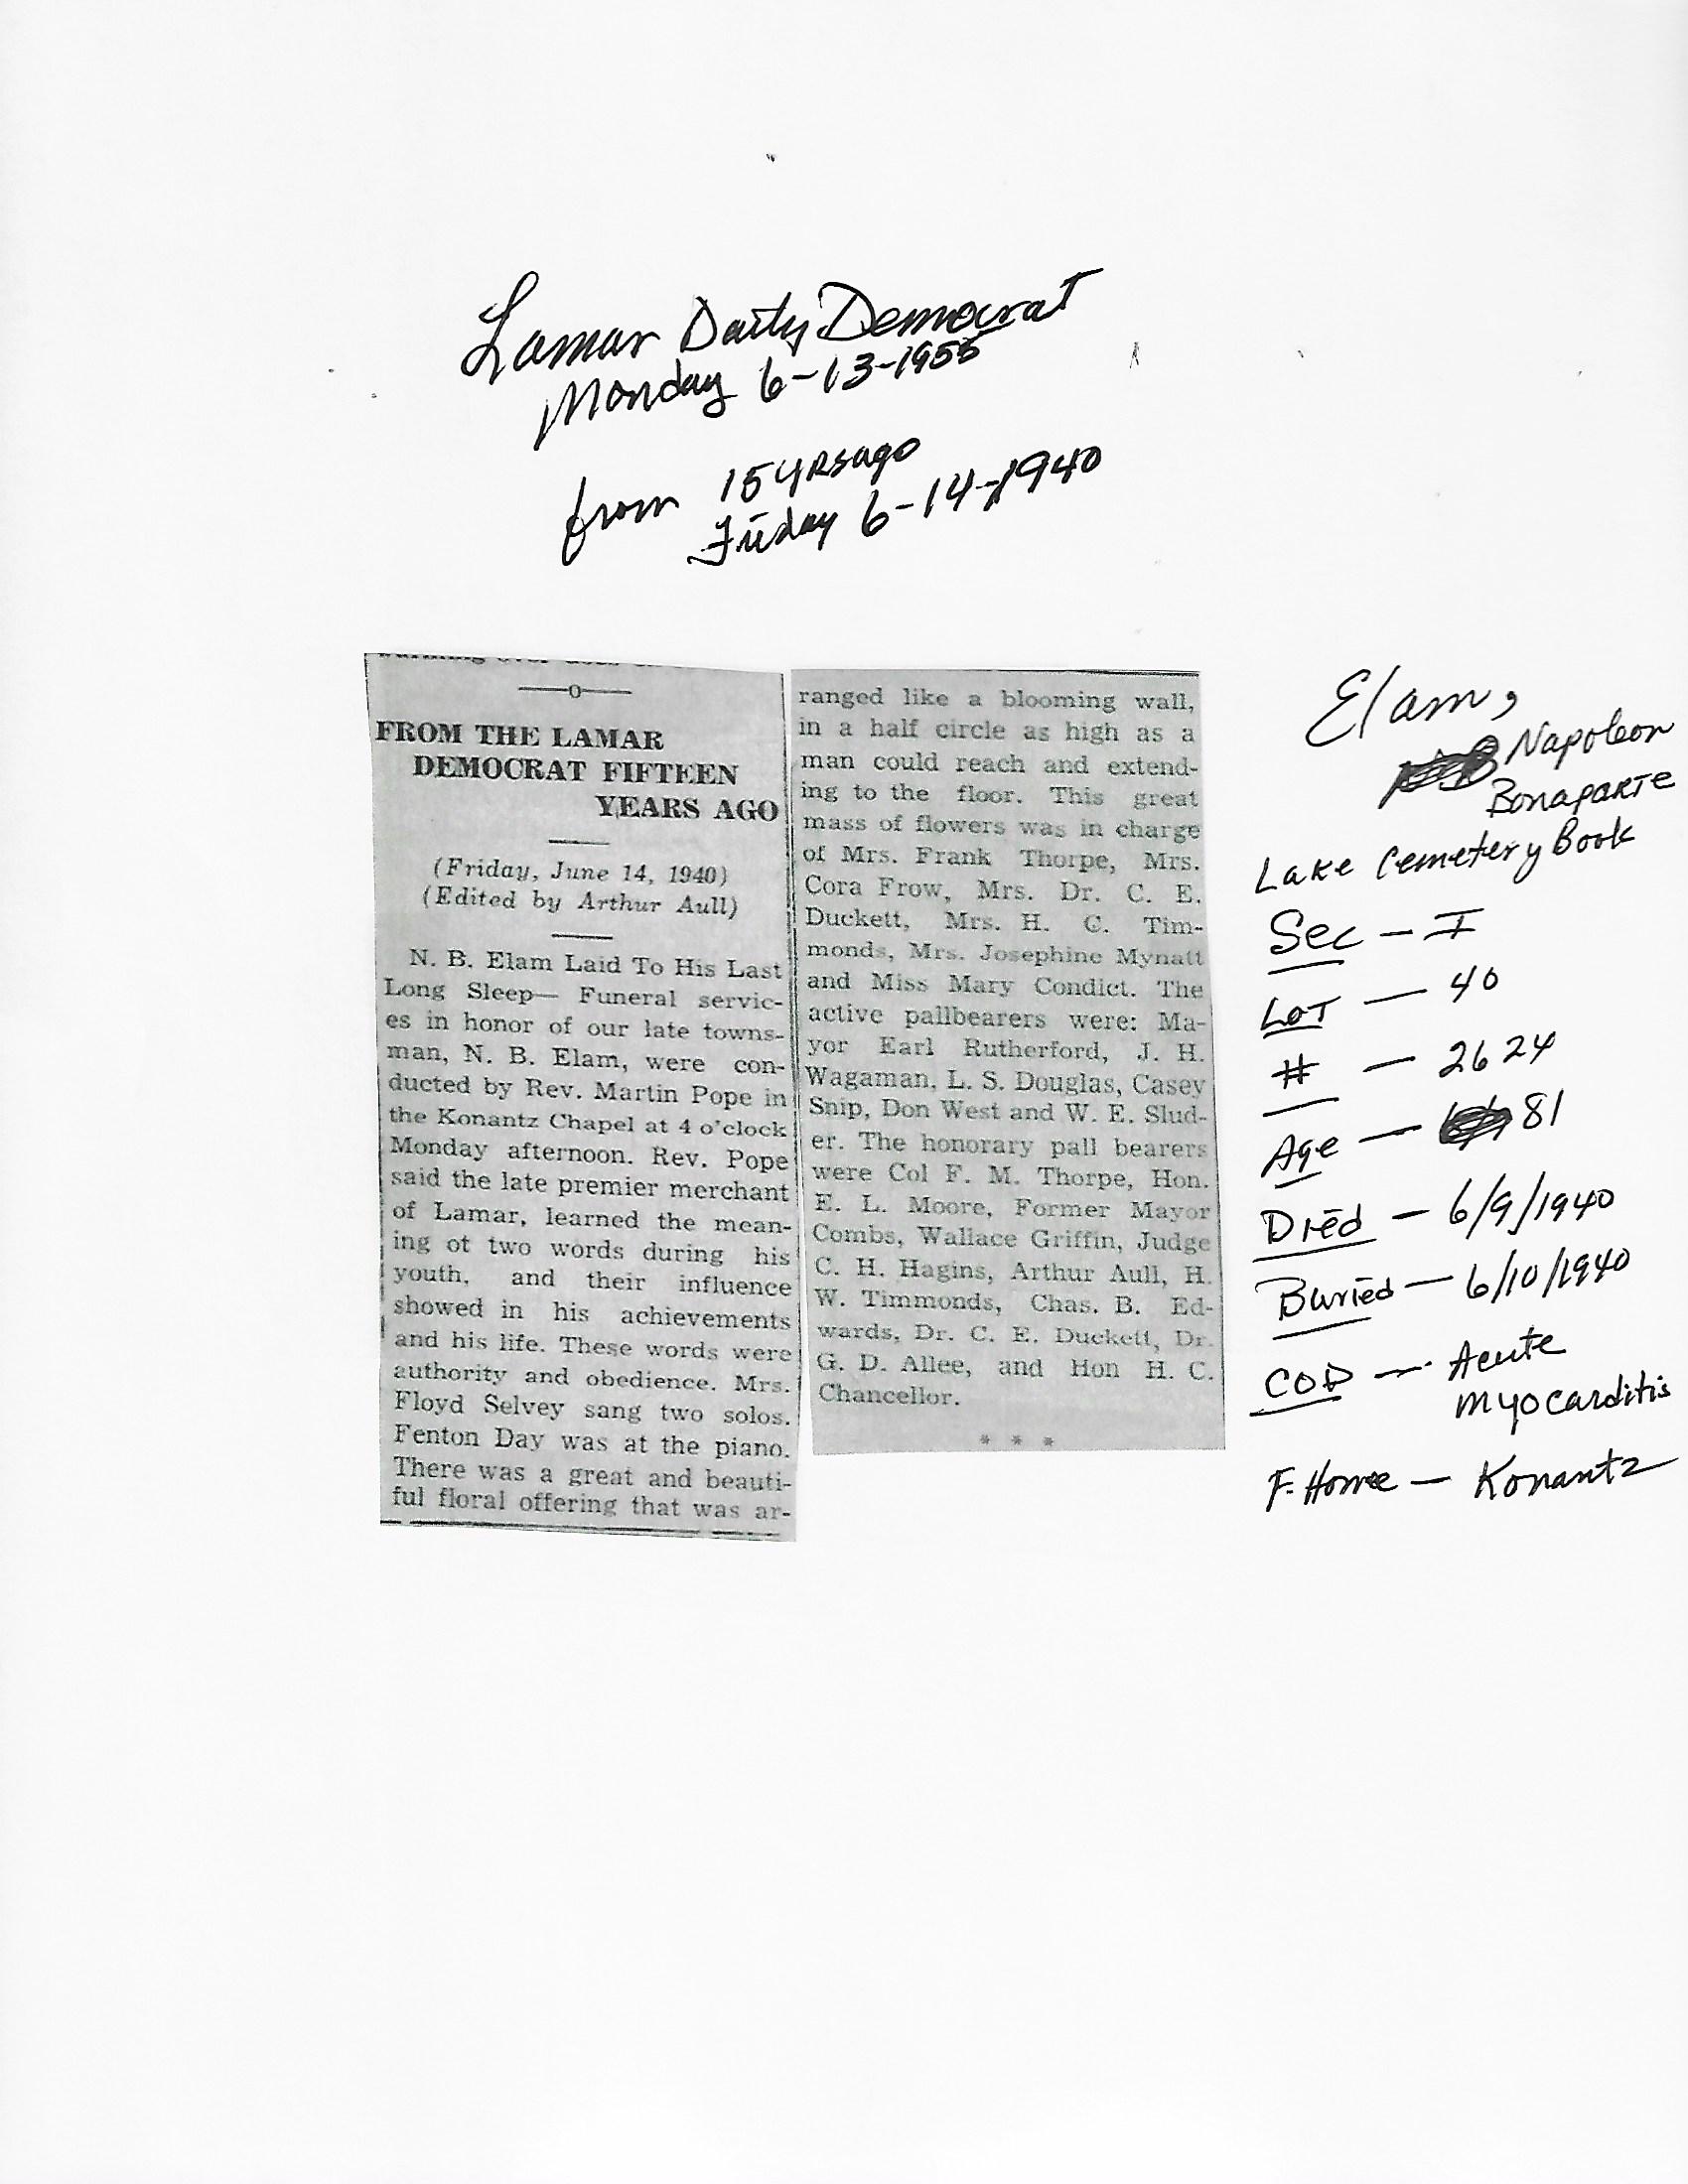 Lamar Daily Democrat
Monday 6-13-1955
from 15 yrs ago
Friday 6-14-1940
—o—
FROM THE LAMAR
DEMOCRAT FIFTEEN
YEARS AGO
(Friday, June 14, 1940)
(Edited by Arthur Aull)
N. B. Elam Laid To His Last
Long Sleep— Funeral servic-
es in honor of our late towns-
man, N. B. Elam, were con-
ducted by Rev. Martin Pope in
the Konantz Chapel at 4 o'clock
Monday afternoon. Rev. Pope
said the late premier merchant
of Lamar, learned the mean-
ing ot two words during his
youth, and their influence
showed in his achievements
and his life. These words were
authority and obedience. Mrs.
Floyd Selvey sang two solos.
Fenton Day was at the piano.
There was a great and beauti-
ful floral offering that was ar-
ranged like a blooming wall,
in a half circle as high as a
man could reach and extend-
ing to the floor. This great
mass of flowers was in charge
of Mrs. Frank Thorpe, Mrs.
Cora Frow, Mrs. Dr. C. E.
Duckett, Mrs. H. C. Tim-
monds, Mrs. Josephine Mynatt
and Miss Mary Condict. The
active pallbearers were: Ma-
yor Earl Rutherford, J. H.
Wagaman, L. S. Douglas, Casey
Snip, Don West and W. E. Slud-
er. The honorary pall bearers
were Col F. M. Thorpe, Hon.
E. L. Moore, Former Mayor
Combs, Wallace Griffin, Judge
C. H. Hagins, Arthur Aull, H.
W. Timmonds, Chas. B. Ed-
wards, Dr. C. E. Duckett, Dr.
G. D. Allee, and Hon H. C.
Chancellor.
* * *
Elam,
Napoleon
Bonaparte
Lake Cemetery Book
Sec — I
Lot — 40
# — 2624
Age — 81
Died — 6/9/1940
Buried — 6/10/1940
COD — Acute
myocarditis
F. Home — Konantz